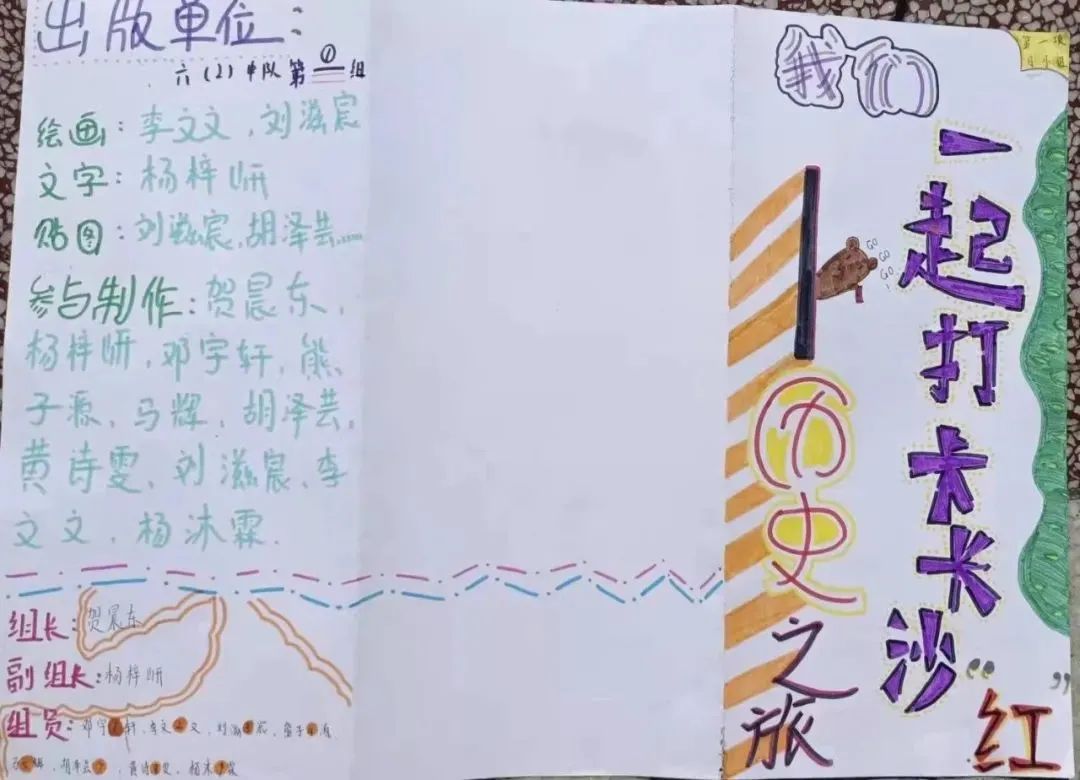 出版单位:
六(2)中队第①组
绘画:李文文,刘滋宸
文字:杨梓妍
贴图:刘滋宸,胡泽芸……
参与制作:贺晨东,
杨梓妍,邓宇轩,熊
子源,马辉,胡泽芸,
黄诗雯,刘滋宸,李
文文,杨沐霖.
组长:贺晨东
副组长:杨梓妍
组员:邓宇轩,李文文,刘滋宸
黄诗雯,杨沐霖
我们
一起打卡长沙“红”
历史之旅
GO
GO
GO!
第一
小组